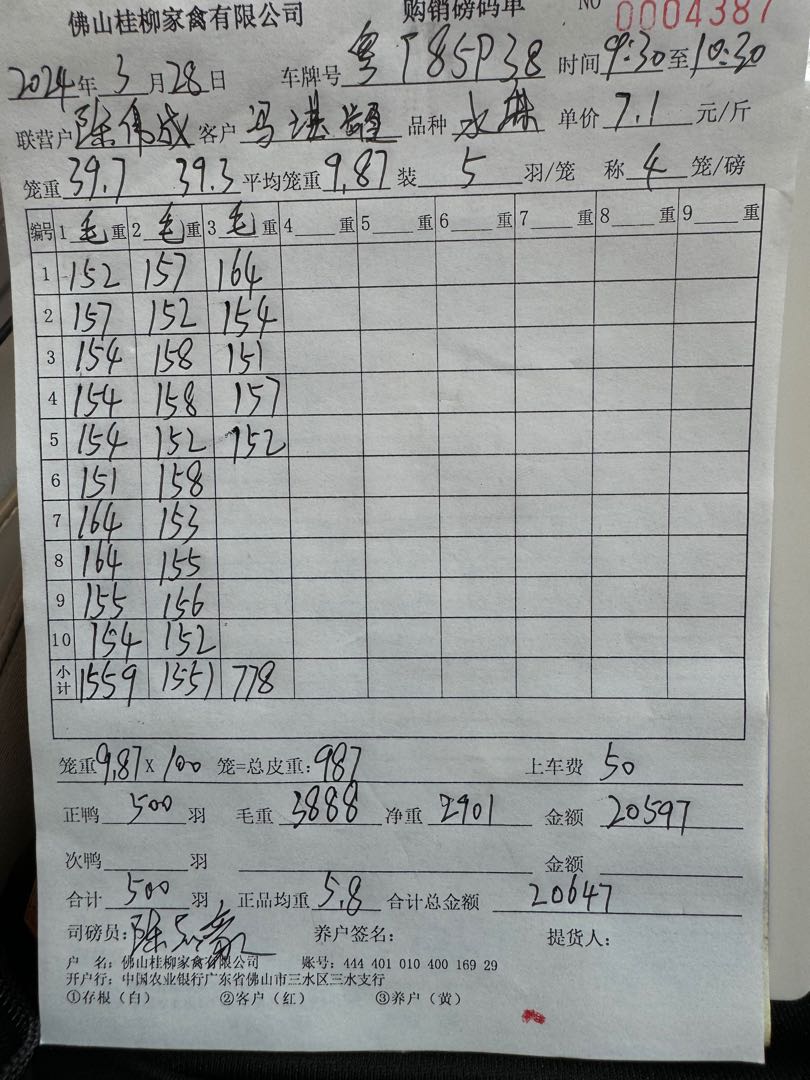 佛山桂柳家禽有限公司 购销磅码单 NO 0004387
2024年3月28日 车牌号 粤T85P38 时间9:30至10:30
联营户 陈伟成 客户 冯洪 品种 水 单价 7.1 元/斤
笼重 39.7 39.3 平均笼重 9.87 装 5 羽/笼 称 4 笼/磅
编号 1 毛 重 2 毛 重 3 毛 重 4 重 5 重 6 重 7 重 8 重 9 重
1 152 157 164
2 157 152 154
3 154 158 151
4 154 158 157
5 154 152 152
6 151 158
7 164 153
8 164 155
9 155 156
10 154 152
小计 1559 1551 778
笼重9.87×100 笼=总皮重:987 上车费 50
正鸭 500 羽 毛重 3888 净重 2901 金额 20597
次鸭 羽 金额
合计 500 羽 正品均重 5.8 合计总金额 20647
司磅员:陈 养户签名: 提货人:
户 名:佛山桂柳家禽有限公司 账号:444 401 010 400 169 29
开户行:中国农业银行广东省佛山市三水区三水支行
①存根(白) ②客户(红) ③养户(黄)